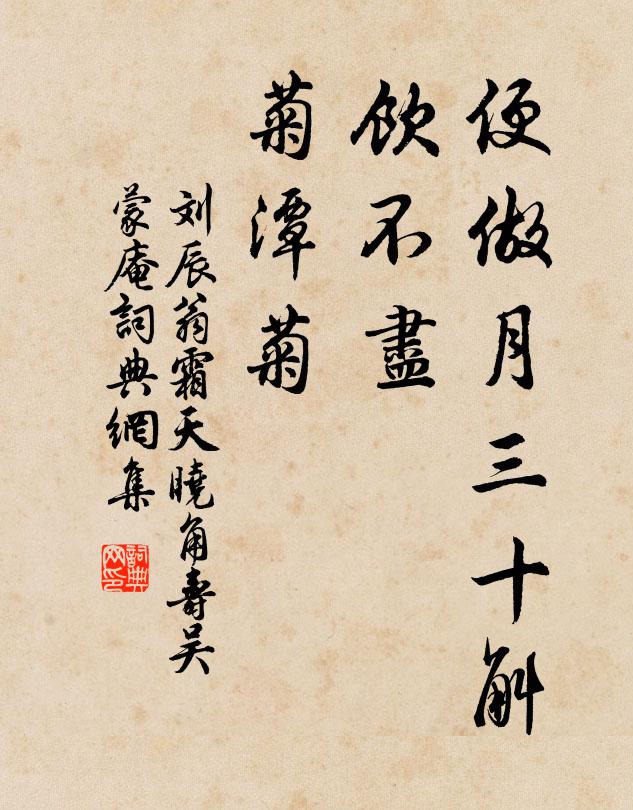 便做月三十斛
飲不盡
菊潭菊
刘辰翁霜天曉角壽吴
蒙庵詞典網集
詞典网印